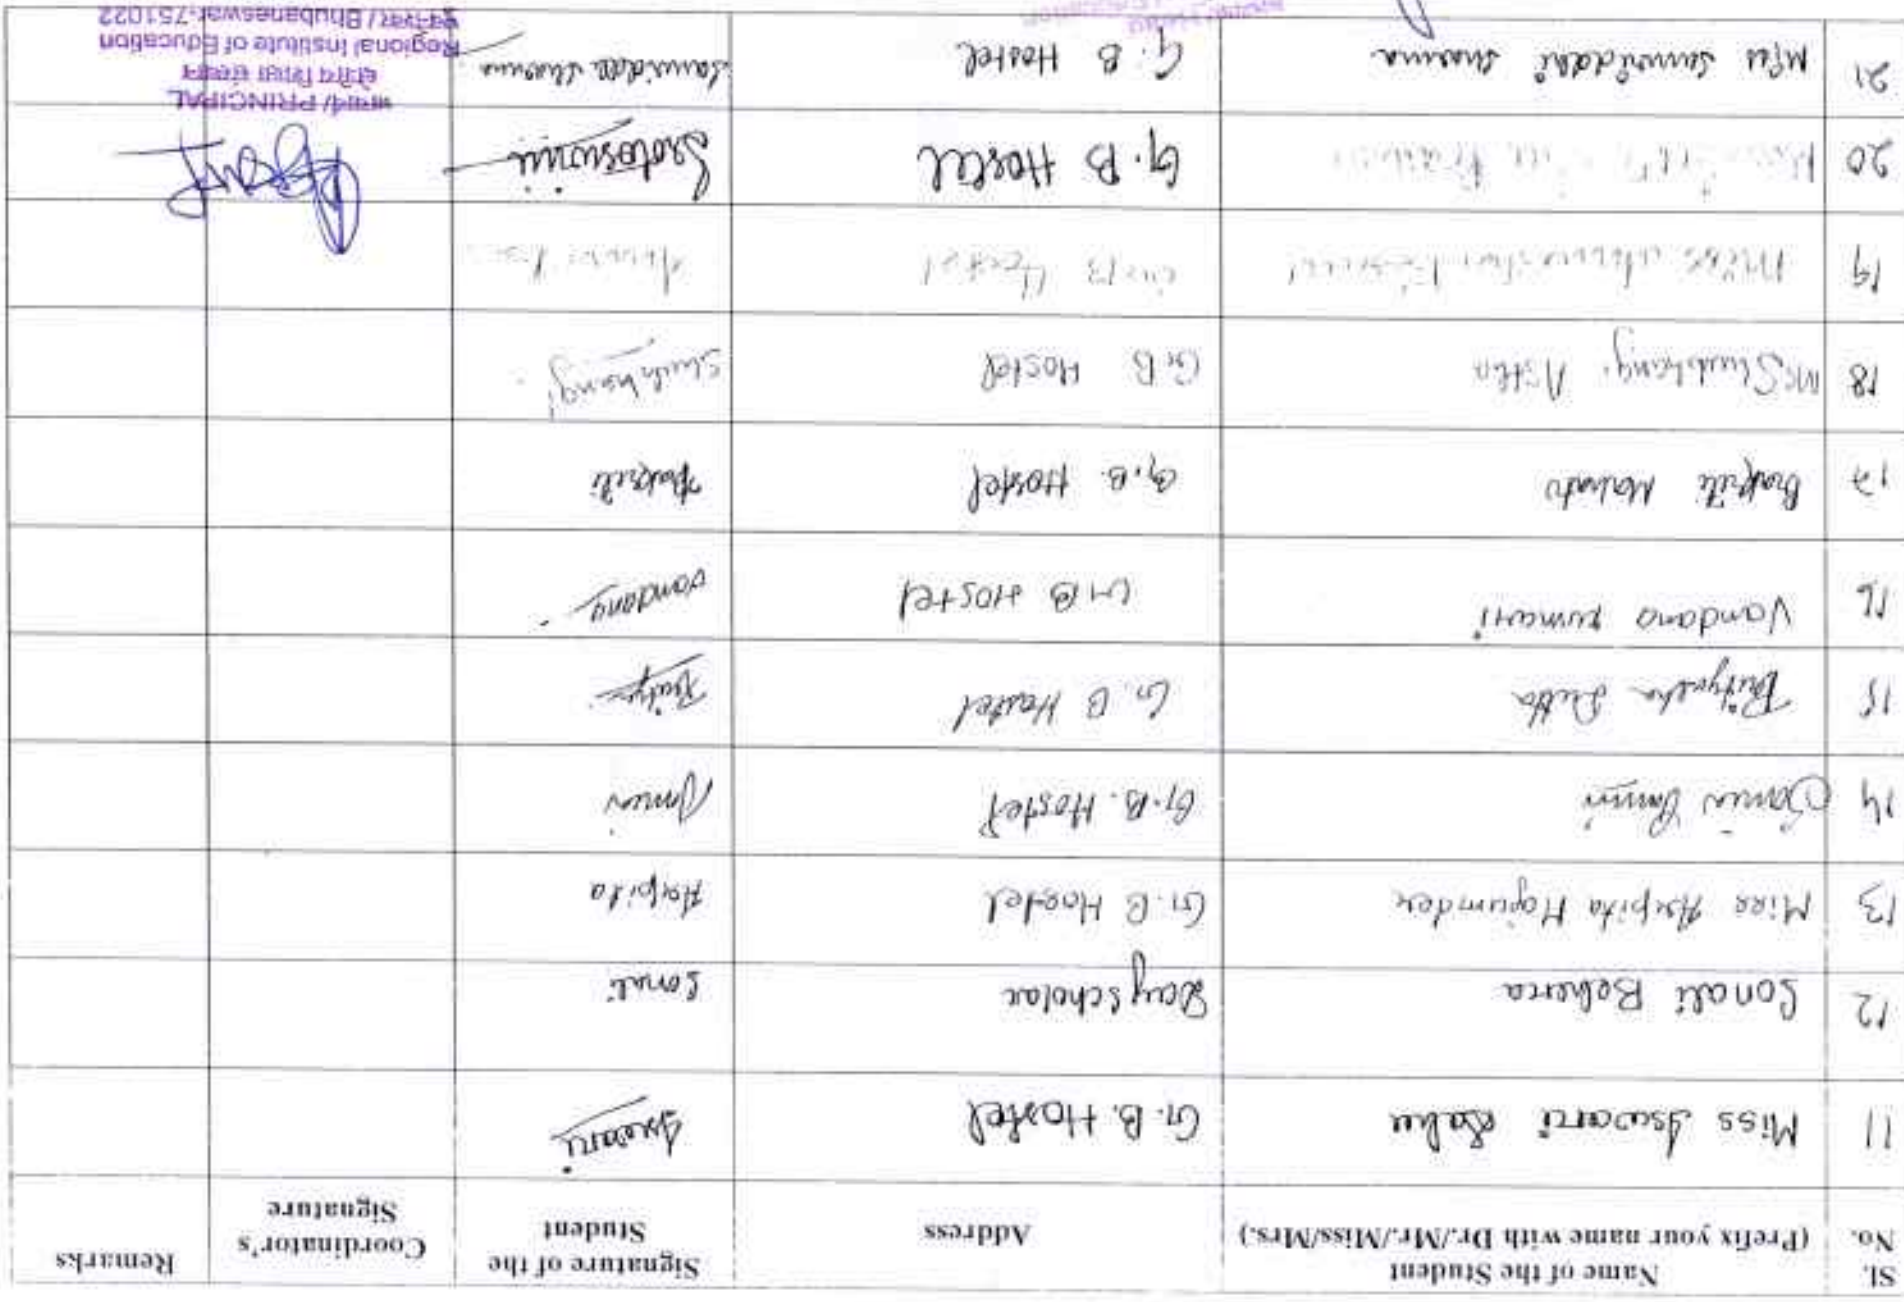 Sl. No. | Name of the Student (Prefix your name with Dr./Mr./Miss/Mrs.) | Address | Signature of the Student | Coordinator's Signature | Remarks
11 | Miss Iswari Sahu | G.B. Hostel | Iswari
12 | Sonali Behera | Dayscholar | Sonali
13 | Miss Arpita Mojumder | G.B Hostel | Arpita
14 | G.B. Hostel
15 | Dutta | G.B Hostel
16 | Vandana kumari | G.B Hostel | vandana
17 | Prakriti Mahato | G.B. Hostel | Prakriti
18 | Shubhangi Astha | G.B Hostel | Shubhangi
19 | Miss | G.B Hostel
20 | G.B Hostel
21 | Miss Sharma | G.B Hostel | Sharma
प्राचार्य/ PRINCIPAL
क्षेत्रीय शिक्षा संस्थान
Regional Institute of Education
भुवनेश्वर / Bhubaneswar-751022